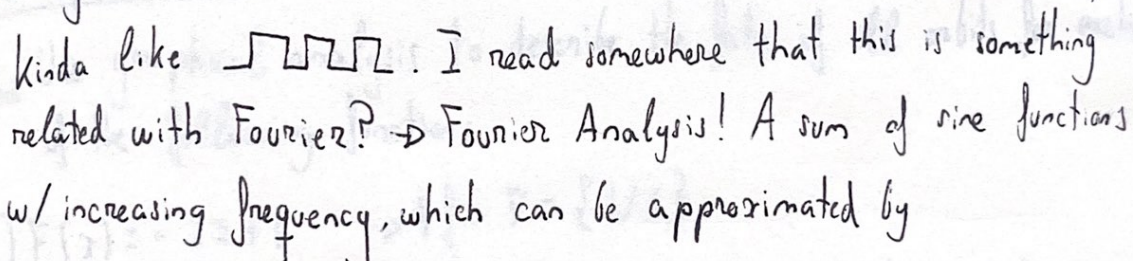 kinda like . I read somewhere that this is something
related with Fourier? → Fourier Analysis! A sum of sine functions
w/ increasing frequency, which can be approximated by